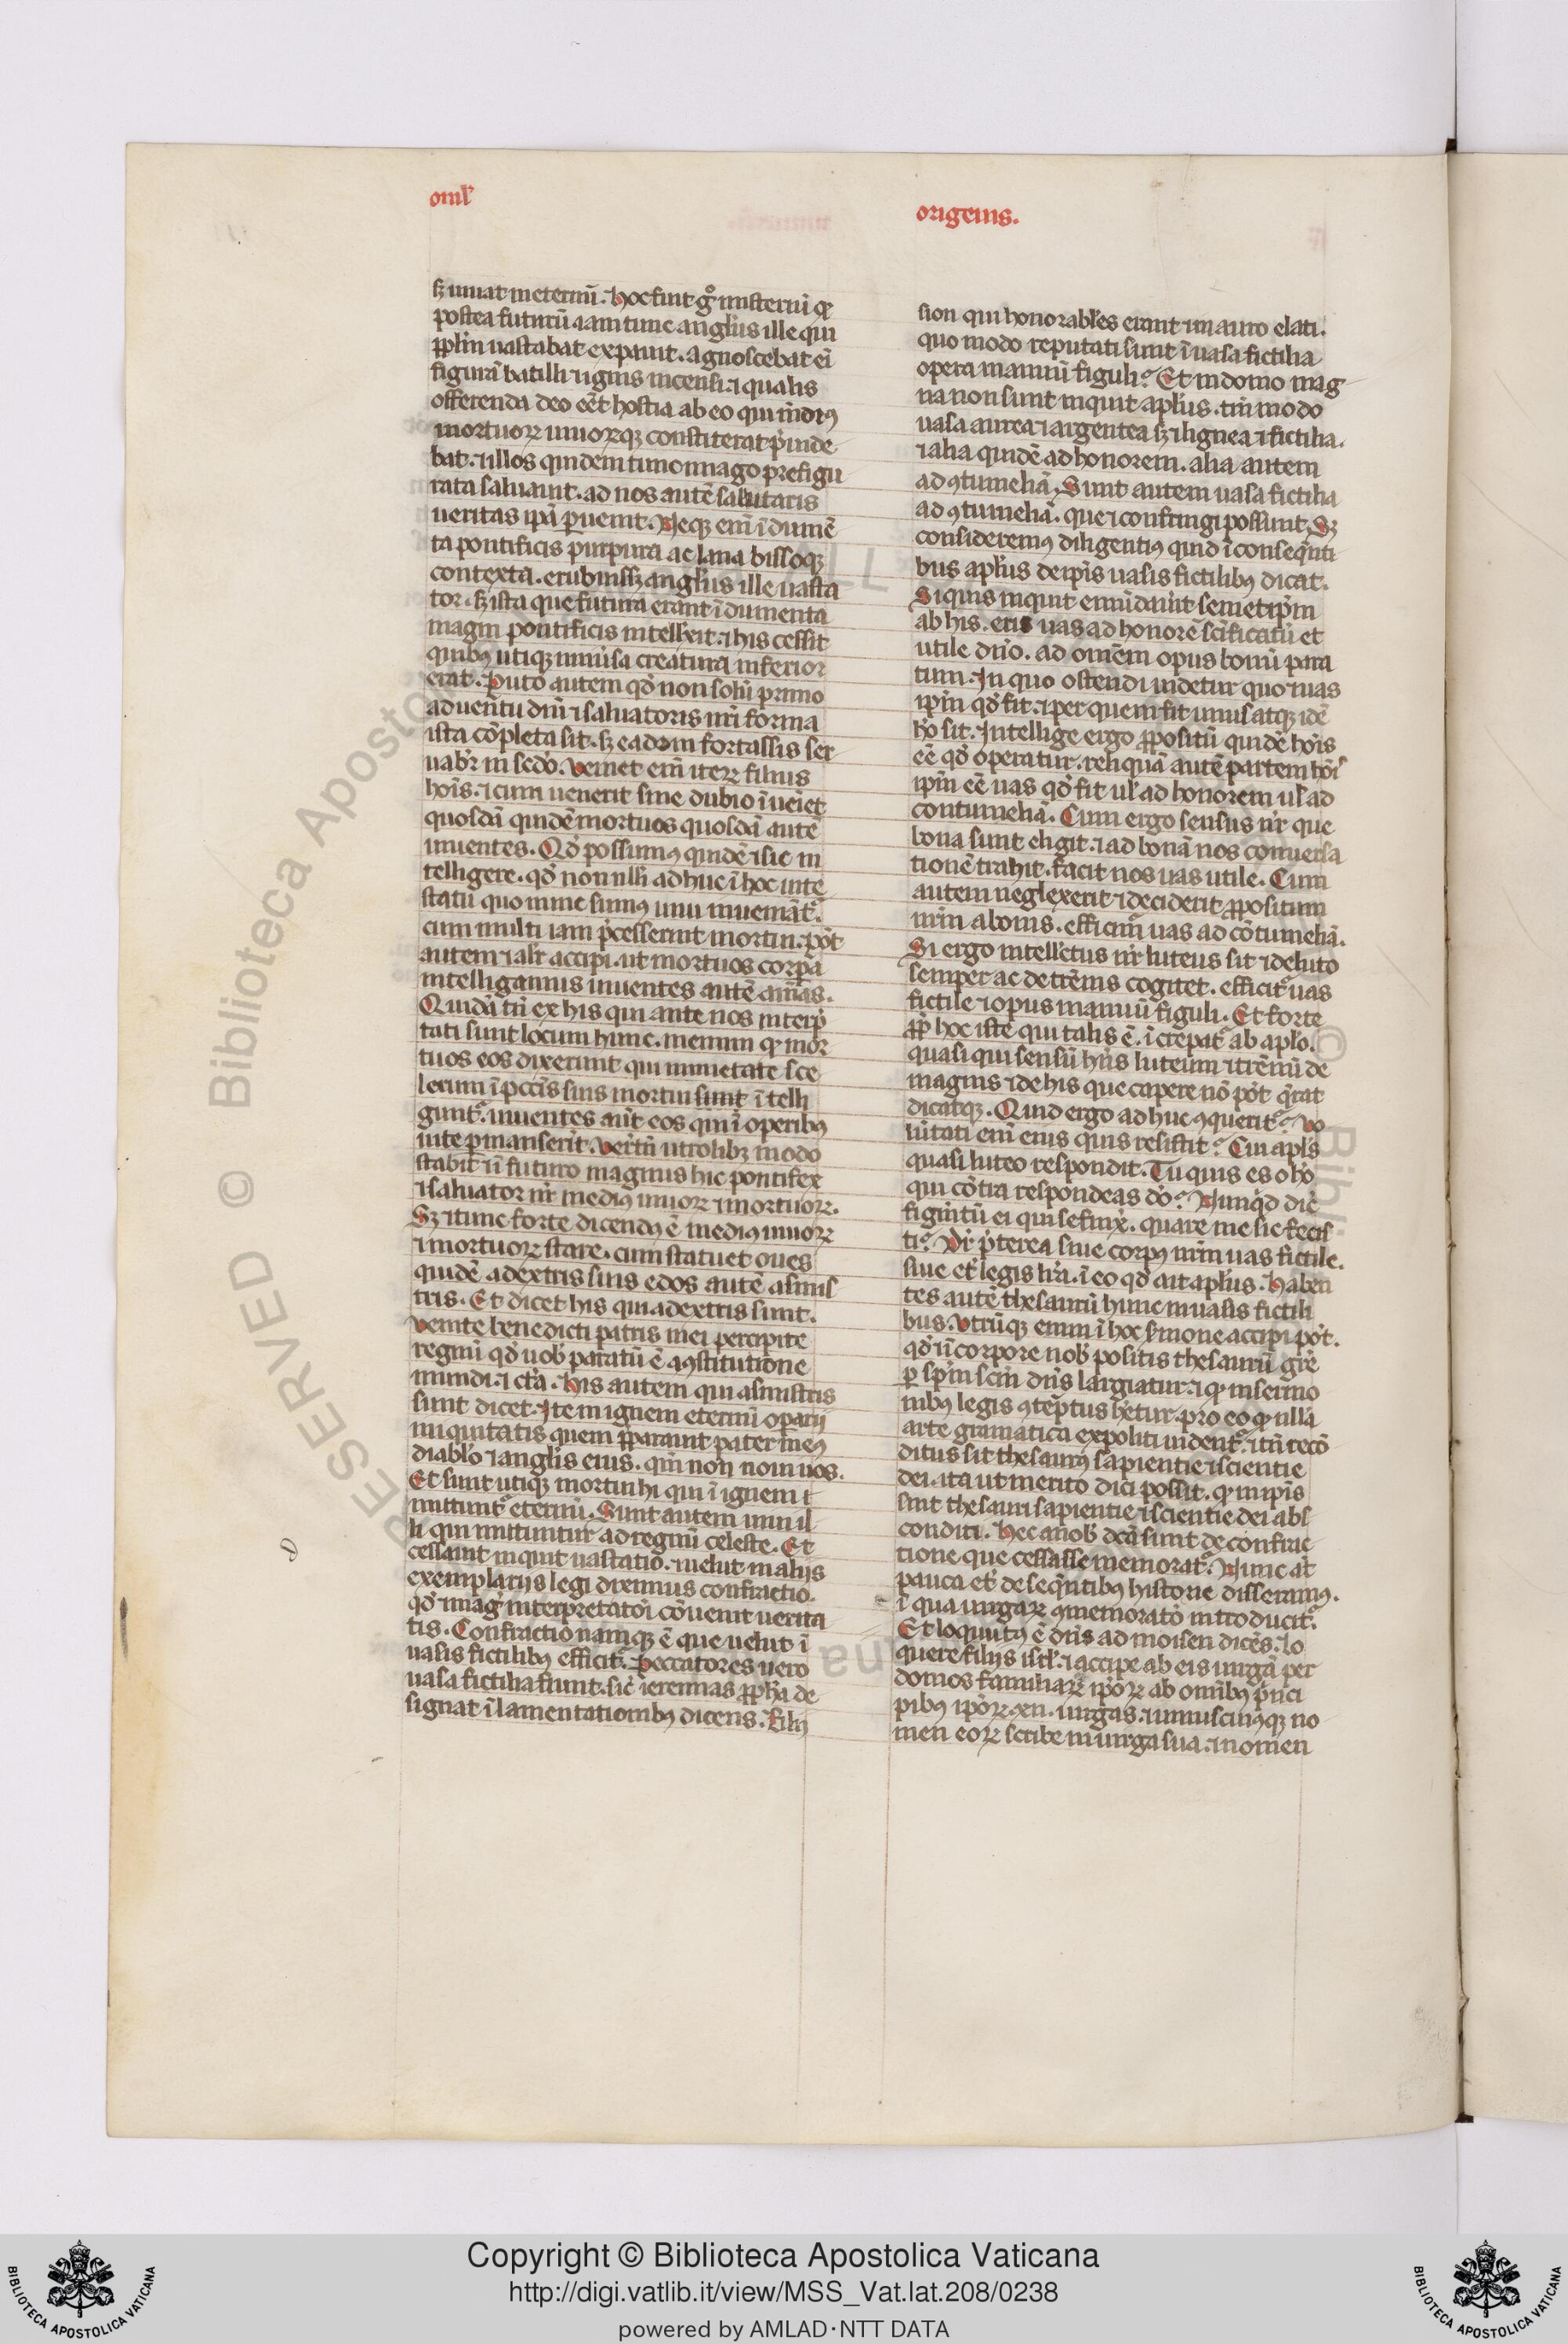 oml'
origenis.
sꝫ uiuat in eternū. Hoc fuit gͦ misteriū qꝫ
postea futurū iam tunc anglꝰus ille qui
pplm̄ uastabat expauit. agnoscebat eī
figurā batilli ⁊ ignis incensi. ⁊ qualis
offerenda deo eēt hostia ab eo qui in̄diꝰ
mortuoꝝ uiuoꝝqꝫ constiterat p̄uide
bat. ⁊ illos quidem timor imago prefigu
rata saluauit. ad nos autē salutaris
ueritas ip̄a puenit. Neqꝫ em̄ īdumē
ta pontificis purpura ac lana bissoqꝫ
contexta. erubuissꝫ anglꝰus ille uasta
tor. sꝫ ista que futura erant īdumenta
magni pontificis intellexit. ⁊ his cessit
quibꝰ utiqꝫ uniūsa creatura inferior
erat. Puto autem qď non solū primo
aduentu dn̄i ⁊ saluatoris nr̄i forma
ista cōpleta sit. sꝫ eadem fortassis ser
uabr̄ in sedo. Veniet em̄ iteꝝ filius
hoīs. ⁊ cum uenerit sine dubio īueīet
quosdā quidē mortuos quosdā autē
uiuentes. Qď possumꝰ quidē ⁊ sic in
telligere. qď non nulli adhuc ī hoc uite
statu quo nunc sumꝰ uiui inueniāt᷑.
cum multi iam p̄cesserint mortui. pōt
autem ⁊ alr̄ accipi. ut mortuos corpa
intelligamus uiuentes autē aīas.
Quidā tn̄ ex his qui ante nos interp̄
tati sunt locum hunc. memini qꝫ mor
tuos eos dixerunt qui immetate sce
lerum ī pccīs suis mortui sunt ītelli
gunt᷑. uiuentes aūt eos qui ī operibꝰ
uite pmanserīt. Vertn̄ utrolibꝫ modo
stabit ī futuro magnus hic pontifex
⁊ saluator nr̄ mediꝰ uiuoꝝ ⁊ mortuoꝝ.
Sꝫ ⁊ tunc forte dicendꝰ ē mediꝰ uiuoꝝ
⁊ mortuoꝝ stare. cum statuet oues
quidē a dextris suis edos autē a sinis
tris. Et dicet his qui a dextris sunt.
Venite benedicti patris mei percipite
regnū qď uob̄ paratū ē a ꝯstitutione
mundi. ⁊ ct̄a. His autem qui a sinistris
sunt dicet. Ite in ignem eternū oparij
iniquitatis quem p̄parauit pater meꝰ
diablo ⁊ anglis eius. qm̄ non noui uos.
Et sunt utiqꝫ mortui hi qui ī ignem ī
mittunt᷑ eternū. Sunt autem uiui il
li qui mittuntur ad regnū celeste. Et
cessauit inquit uastatio. uelut in alijs
exemplarijs legi diximus confractio.
qď magꝰ interpretatōi cōuenit uerita
tis. Confractio namqꝫ ē que uelut ī
uasis fictilibꝰ efficit᷑. Peccatores uero
uasa fictilia fiunt. sic̄ ieremias ppha de
signat ī lamentationibꝰ dicens. Filij
sion qui honorables erant in auro elati.
quo modo reputati sunt ī uasa fictilia
opera manuū figuli? Et in domo mag
na non sunt inquit aplꝰus. tm̄ modo
uasa aurea ⁊ argentea sꝫ ⁊ lignea ⁊ fictilia.
⁊ alia quidē ad honorem. alia autem
ad ꝯtumeliā. Sunt autem uasa fictilia
ad ꝯtumeliā. que ⁊ confringi possunt. Sꝫ
consideremꝰ diligentiꝰ quid ī consequēti
bus aplꝰus de ipīs uasis fictilibꝰ dicat.
Si quis inquit emūdauīt semetip̄m
ab his. erit uas ad honorē scīficatū et
utile dn̄o. ad omēm opus bonū para
tum. In quo ostendi uidetur quo ⁊ uas
ip̄m qď fit. ⁊ per quem fit unus atqꝫ idē
hō sit. Intellige ergo ppositū quidē hoīs
eē qď operatur. reliquā autē partem hoīs
ip̄m eē uas qď fit ul' ad honorem ul' ad
contumeliā. Cum ergo sensus nr̄ que
bona sunt eligit. ⁊ ad bonā nos conuersa
tionē trahit. facit nos uas utile. Cum
autem neglexerit ⁊ deciderit ppositum
nr̄m a bonis. efficim᷑ uas ad cōtumeliā.
Si ergo intellꝰetus nr̄ luteus sit ⁊ de luto
semper ac de trēnis cogitet. efficit᷑ uas
fictile ⁊ opus manuū figuli. Et forte
pp hoc iste qui talis ē. īcrepat᷑ ab aplo.
quasi qui sensū hn̄s luteum ⁊ trēnū de
magnis ⁊ de his que capere nō pōt q̄rat
dicatqꝫ. Quid ergo adhuc ꝯquerit᷑? Vo
lūtati em̄ eius quis resistit? Cui aplꝰs
quasi luteo respondit. Tu quis es o hō
qui cōtra respondeas dō? Nunqď dic̄
figm̄tū ei qui se finx̄. quare me sic fecis
ti? Dr̄ p̄terea siue corpꝰ nr̄m uas fictile.
siue et̄ legis lr̄a. ī eo qď ait aplꝰus. Haben
tes autē thesaurū hunc in uasis fictili
bus. Vtrūqꝫ enim ī hoc s̄mone accipi pōt.
qď ī corpore nob̄ positis thesaurū gr̄e
p sp̄m scm̄ dn̄s largiatur. ⁊ qꝫ in sermo
nibꝰ legis ꝯtēptus hētur. pro eo qꝫ nulla
arte gramatica expoliti uident᷑. ⁊ tn̄ recō
ditus sit thesaurꝰ sapientie ⁊ scientie
dei. ita ut merito dici possit. qꝫ in ipīs
sint thesauri sapientie ⁊ scientie dei abs
conditi. Hec a nob̄ dc̄a sunt de confrac
tione que cessasse memorat᷑. Nunc at̄
pauca et̄ de sequētibꝰ historie disseramꝰ.
ī qua uirgaꝝ ꝯmemoratō introducit᷑.
Et loquutꝰ ē dn̄s ad moisen dicēs. lo
quere filijs isrl'. ⁊ accipe ab eis uirgā per
domos familiaꝝ ipōꝝ ab omībꝰ p̄nci
pibꝰ ipōꝝ. xii. uirgas. ⁊ uniuscuiꝰqꝫ no
men eoꝝ scribe in uirga sua. ⁊ nomen
Copyright © Biblioteca Apostolica Vaticana
http://digi.vatlib.it/view/MSS_Vat.lat.208/0238
powered by AMLAD·NTT DATA
BIBLIOTECA APOSTOLICA VATICANA
BIBLIOTECA APOSTOLICA VATICANA